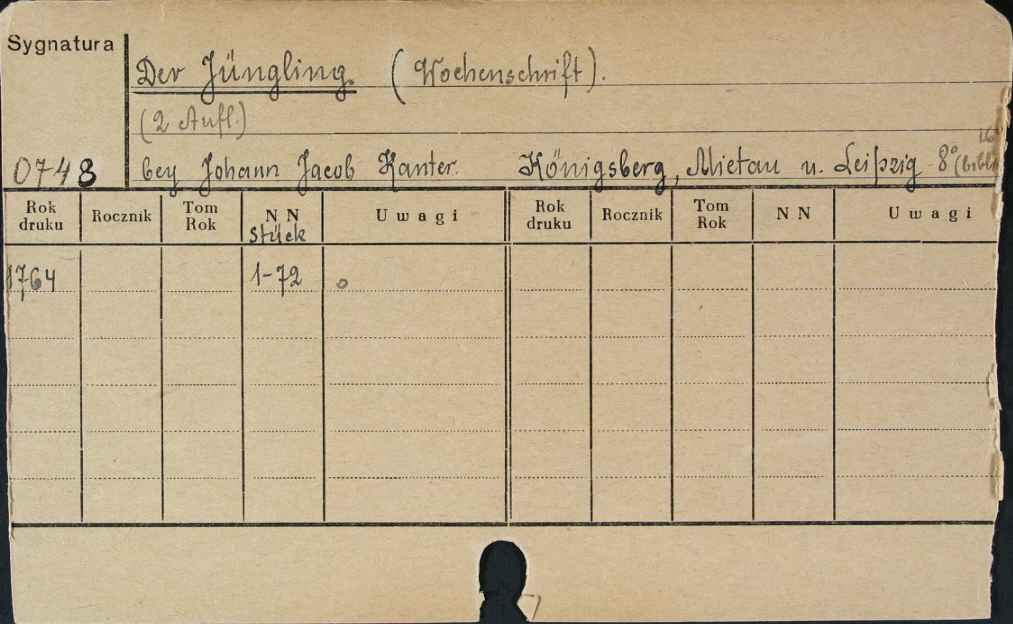 Sygnatura
Der Jüngling. (Wochenschrift).
(2 Aufl.)
0748 bey Johann Jacob Kanter. Königsberg, Mietau u. Leipzig 8°
Rok druku Rocznik Tom Rok N N Stück Uwagi Rok druku Rocznik Tom Rok N N Uwagi
1764 1-72 o